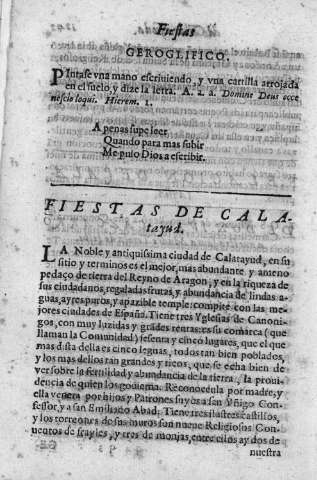 Fiestas
GEROGLIFICO.
PIntase vna mano escriuiendo, y vna cartilla arrojada
en el suelo, y dize la letra. A. a. a. Domine Deus ecce
nescio loqui. Hierem. 1.
Apenas supe leer
Quando para mas subir
Me puso Dios a escribir.
FIESTAS DE CALA-
tayud.
LA Noble y antiquissima ciudad de Calatayud, en su
sitio y terminos es el mejor, mas abundante y ameno
pedaço de tierra del Reyno de Aragon, y en la riqueza de
sus ciudadanos, regaladas frutas, y abundancia de lindas a-
guas, ayres puros, y apazible temple: compite con las me-
jores ciudades de España. Tiene tres Yglesias de Canoni-
gos, con muy luzidas y grades rentas: es su comarca (que
llaman la Comunidad) sesenta y cinco lugares, que el que
mas dista della es cinco leguas, todos tan bien poblados,
y los mas dellos tan grandes y ricos, que se echa bien de
ver sobre la fertilidad y abundancia de la tierra, la proui-
dencia de quien los gouierna. Reconocela por madre, y
ella venera por hijos y Patrones suyos a san Yñigo Con-
fessor, y a san Emiliano Abad. Tiene tres ilustres castillos,
y los torreones de sus muros son nueue Religiosos Con-
uentos de frayles, y tres de monjas, entre ellos ay dos de
nuestra